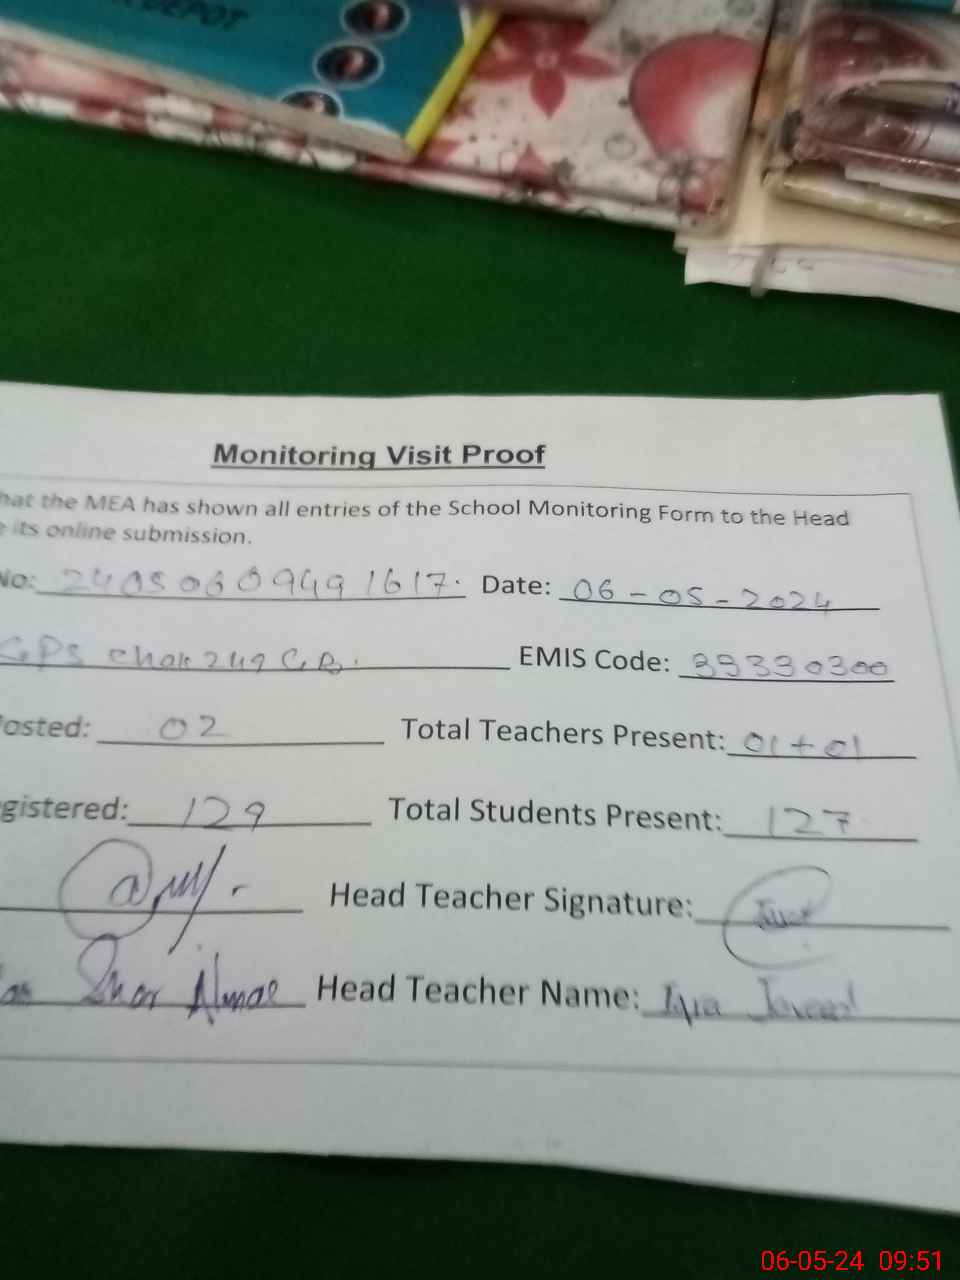 DEPOT
Monitoring Visit Proof
hat the MEA has shown all entries of the School Monitoring Form to the Head
e its online submission.
No: 24050609491617. Date: 06-05-2024
GPS chak 249 GB. EMIS Code: 33330300
osted: 02 Total Teachers Present: 01+01
gistered: 129 Total Students Present: 127
Head Teacher Signature:
Head Teacher Name: Iqra Javeed
06-05-24 09:51